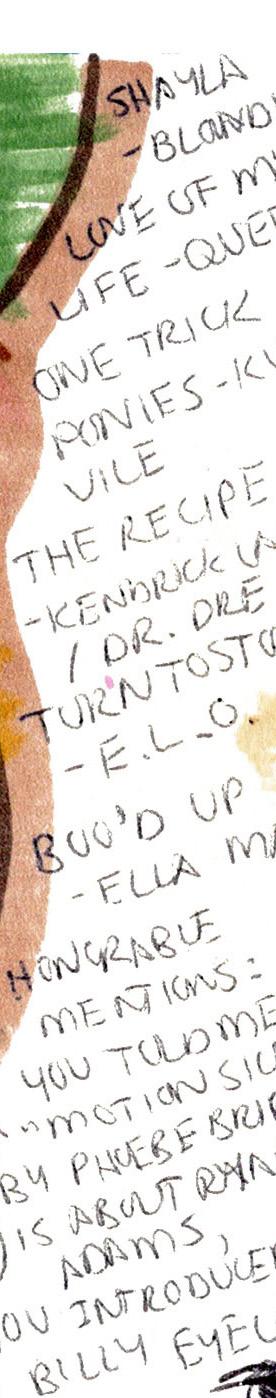 SHAYLA
-BLOND
LOVE OF M
LIFE -QUEE
ONE TRICK
PONIES -KU
VILE
THE RECIPE
-KENDRICK LA
/ DR. DRE
TURN TO STO
- E.L.O.
BOO'D UP
-ELLA MA
HONORABLE
MENTIONS:
YOU TOLD ME
"MOTION SIC
BY PHOEBE BRID
IS ABOUT RYAN
ADAMS,
OU INTRODUCED
BILLY EYEL